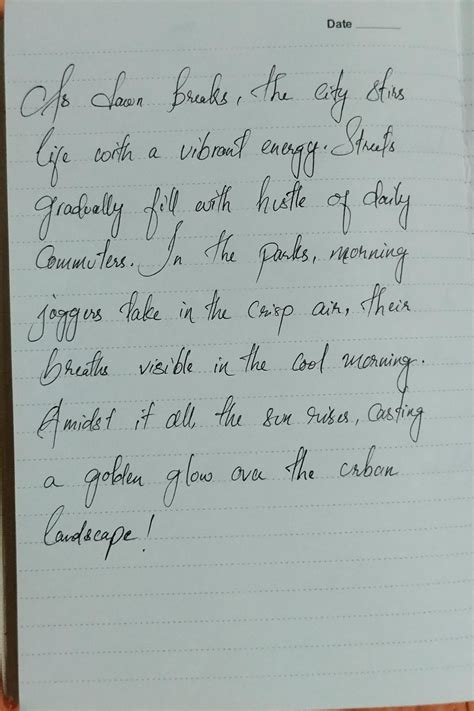 Date
As dawn breaks, the city stirs
life with a vibrant energy. Streets
gradually fill with hustle of daily
Commuters. In the parks, morning
joggers take in the crisp air, their
breaths visible in the cool morning.
Amidst it all, the sun rises, casting
a golden glow over the urban
landscape!